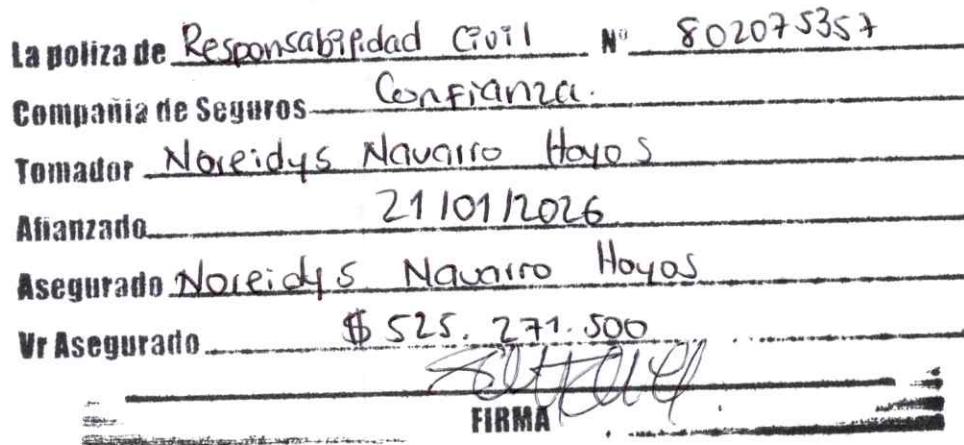 La poliza de Responsabilidad Civil Nº 802075357
Compañia de Seguros Confianza.
Tomador Noreidys Navarro Hoyos
Afianzado 21/01/2026
Asegurado Noreidys Navarro Hoyos
Vr Asegurado $ 525.271.500
FIRMA